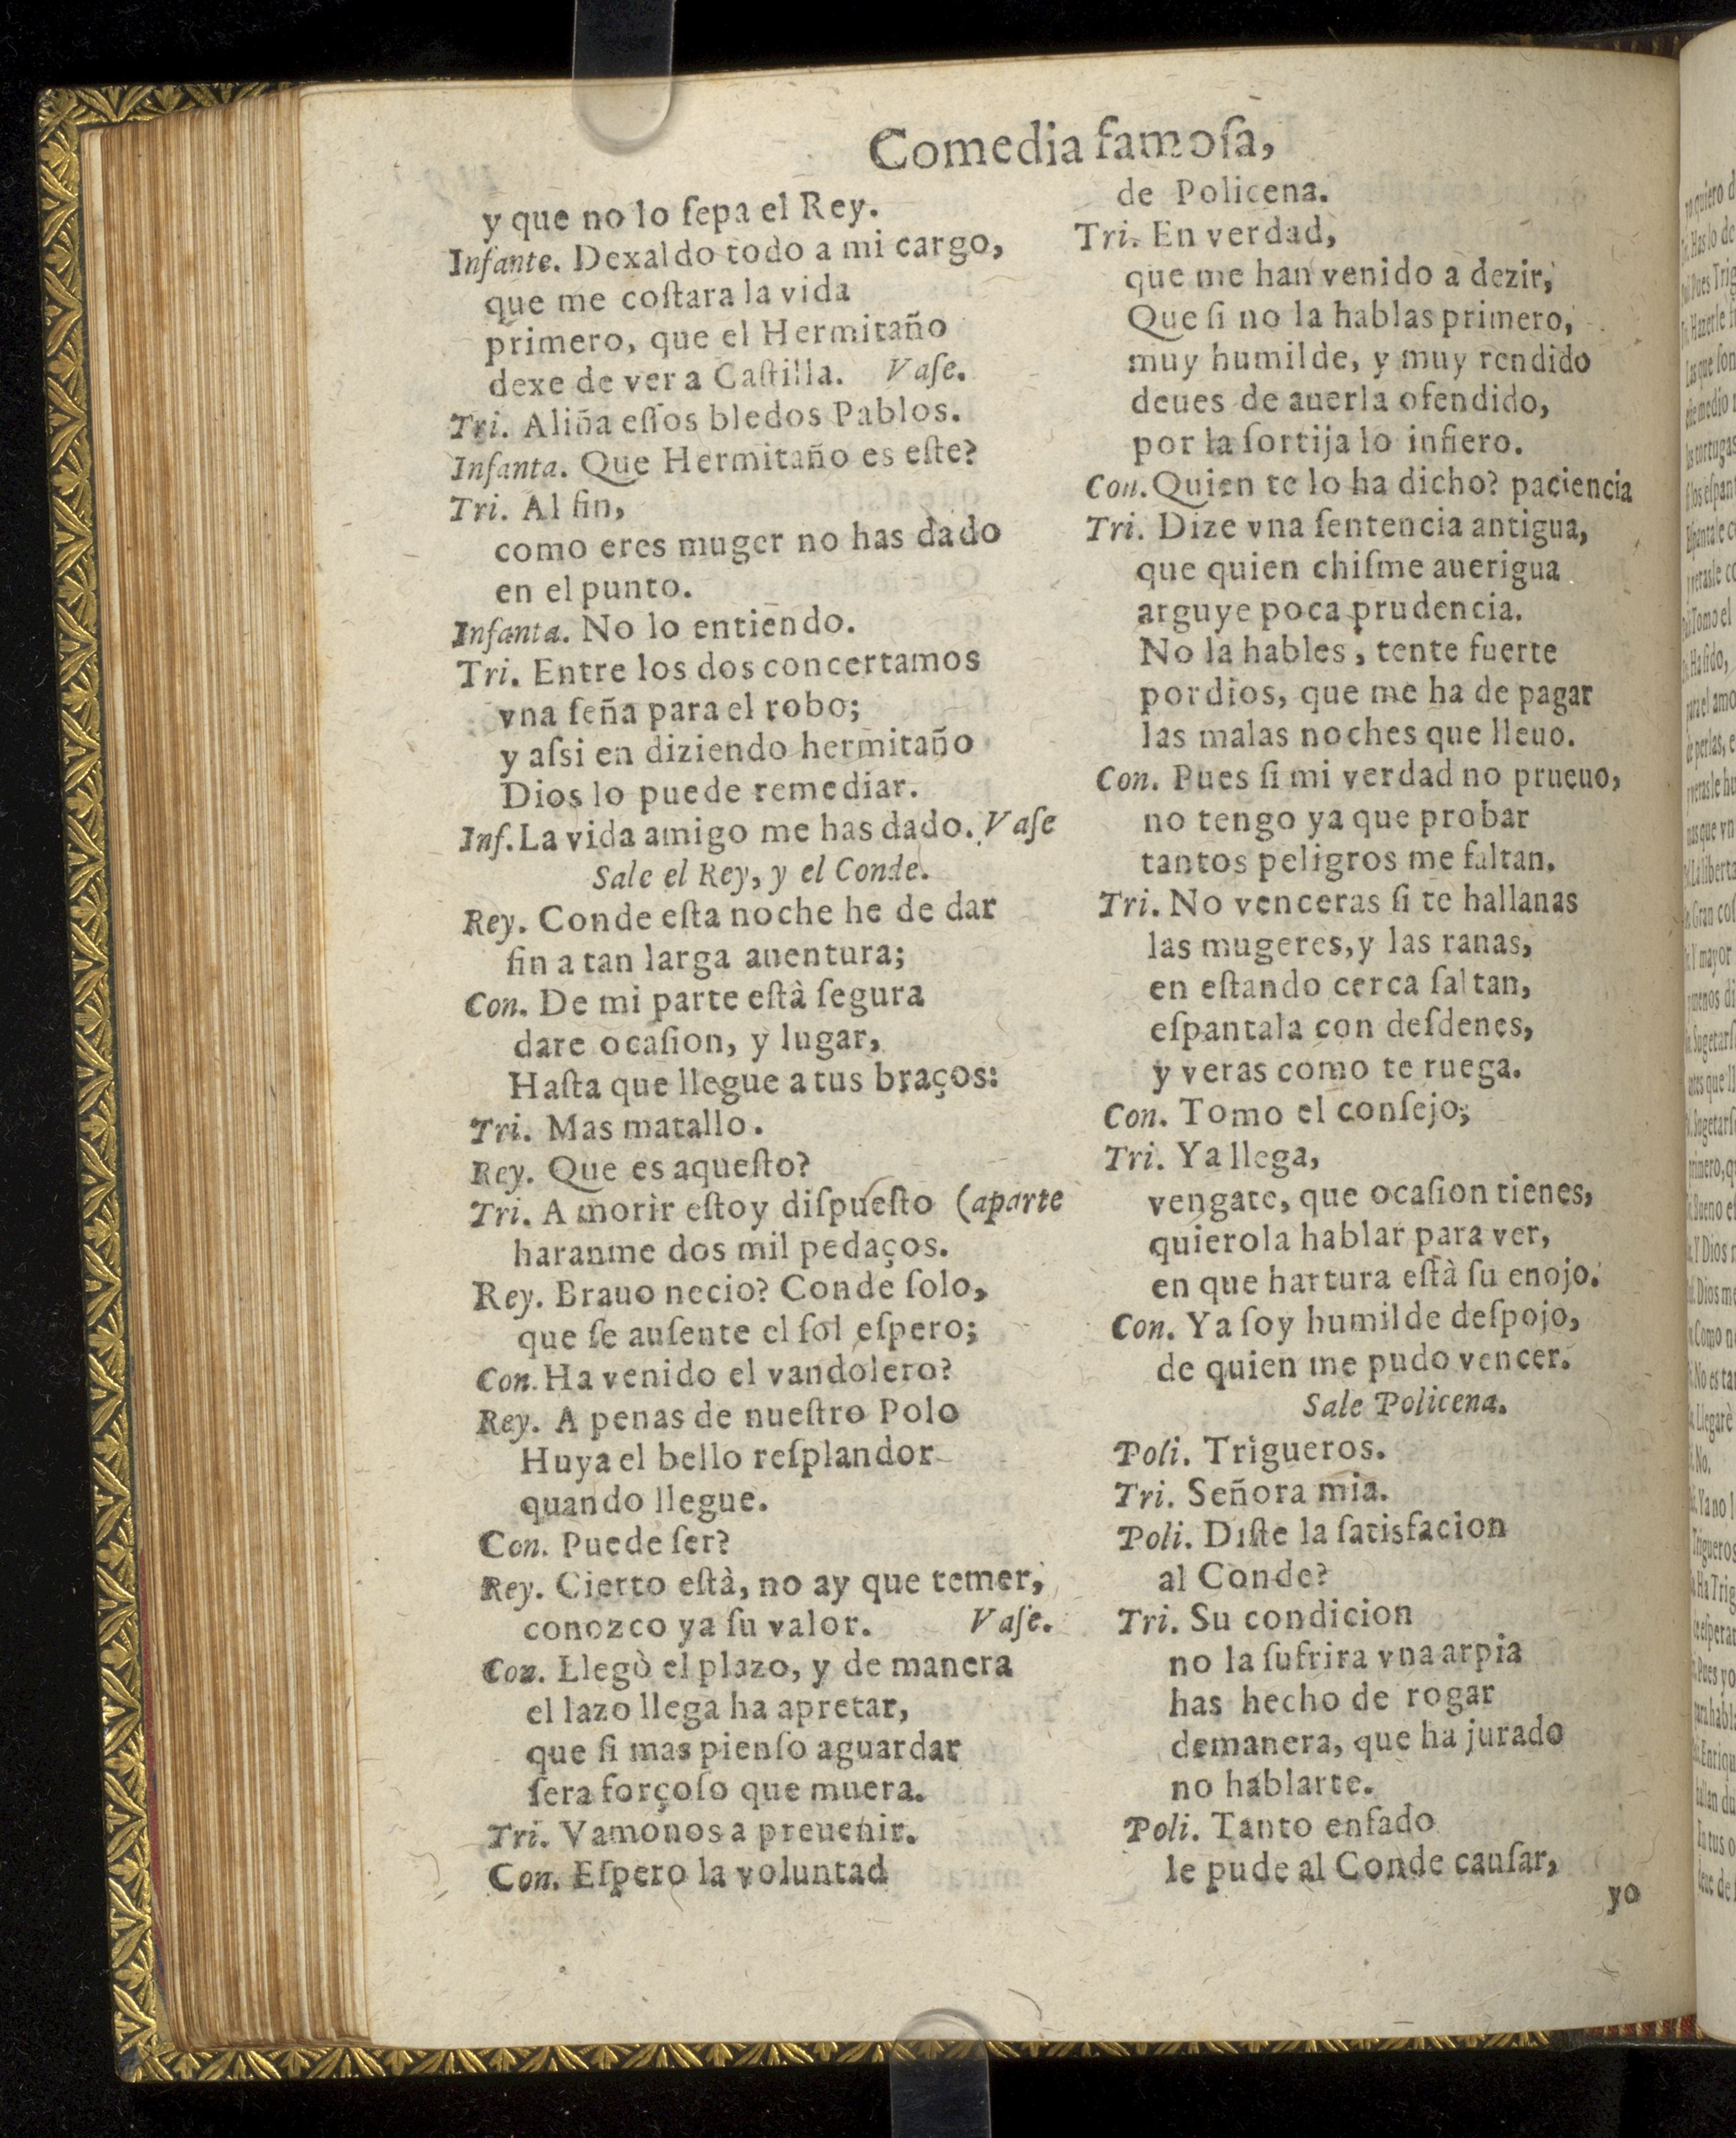 Comedia famoſa,
y que no lo ſepa el Rey.
Infante. Dexaldo todo a mi cargo,
que me coſtara la vida
primero, que el Hermitaño
dexe de ver a Caſtilla. Vaſe.
Tri. Aliña eſſos bledos Pablos.
Infanta. Que Hermitaño es eſte?
Tri. Al fin,
como eres muger no has dado
en el punto.
Infanta. No lo entiendo.
Tri. Entre los dos concertamos
vna ſeña para el robo;
y aſsi en diziendo hermitaño
Dios lo puede remediar.
Inf. La vida amigo me has dado. Vaſe
Sale el Rey, y el Conde.
Rey. Conde eſta noche he de dar
fin a tan larga auentura;
Con. De mi parte eſtà ſegura
dare ocaſion, y lugar,
Haſta que llegue a tus braços:
Tri. Mas matallo.
Rey. Que es aqueſto?
Tri. A morir eſtoy diſpueſto (aparte
haranme dos mil pedaços.
Rey. Brauo necio? Conde ſolo,
que ſe auſente el ſol eſpero;
Con. Ha venido el vandolero?
Rey. A penas de nueſtro Polo
Huya el bello reſplandor
quando llegue.
Con. Puede ſer?
Rey. Cierto eſtà, no ay que temer,
conozco ya ſu valor. Vaſe.
Con. Llegò el plazo, y de manera
el lazo llega ha apretar,
que ſi mas pienſo aguardar
ſera forçoſo que muera.
Tri. Vamonos a preuenir.
Con. Eſpero la voluntad
de Policena.
Tri. En verdad,
que me han venido a dezir,
Que ſi no la hablas primero,
muy humilde, y muy rendido
deues de auerla ofendido,
por la ſortija lo infiero.
Con. Quien te lo ha dicho? paciencia
Tri. Dize vna ſentencia antigua,
que quien chiſme auerigua
arguye poca prudencia.
No la hables, tente fuerte
pordios, que me ha de pagar
las malas noches que lleuo.
Con. Pues ſi mi verdad no prueuo,
no tengo ya que probar
tantos peligros me faltan.
Tri. No venceras ſi te hallanas
las mugeres, y las ranas,
en eſtando cerca ſaltan,
eſpantala con deſdenes,
y veras como te ruega.
Con. Tomo el conſejo;
Tri. Ya llega,
vengate, que ocaſion tienes,
quierola hablar para ver,
en que hartura eſtà ſu enojo.
Con. Ya ſoy humilde deſpojo,
de quien me pudo vencer.
Sale Policena.
Poli. Trigueros.
Tri. Señora mia.
Poli. Diſte la ſatisfacion
al Conde?
Tri. Su condicion
no la ſufrira vna arpia
has hecho de rogar
demanera, que ha jurado
no hablarte.
Poli. Tanto enfado
le pude al Conde cauſar,
yo